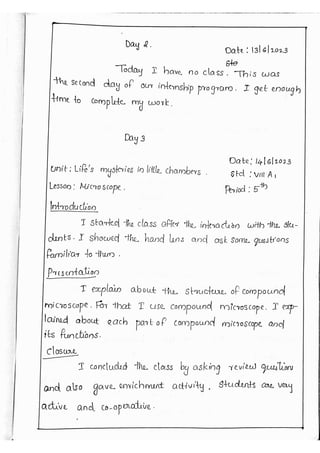 Day 2.
Date : 13/6/2023
Std
Today I have no class. This was
the second day of our internship program. I get enough
time to complete my work.
Day 3
Date : 14/6/2023
Unit : Life's mysteries in little chambers.
Std : VIII A1
Lesson : Microscope.
Period : 5th
Introduction
I started the class after the interaction with the stu-
dents. I showed the hand lens and ask some questions
familiar to them.
Presentation
I explain about the structure of compound
microscope. For that I use compound microscope. I exp-
lained about each part of compound microscope and
its functions.
Closure
I concluded the class by asking review question
and also gave enrichment activity. Students are very
active and co-operative.